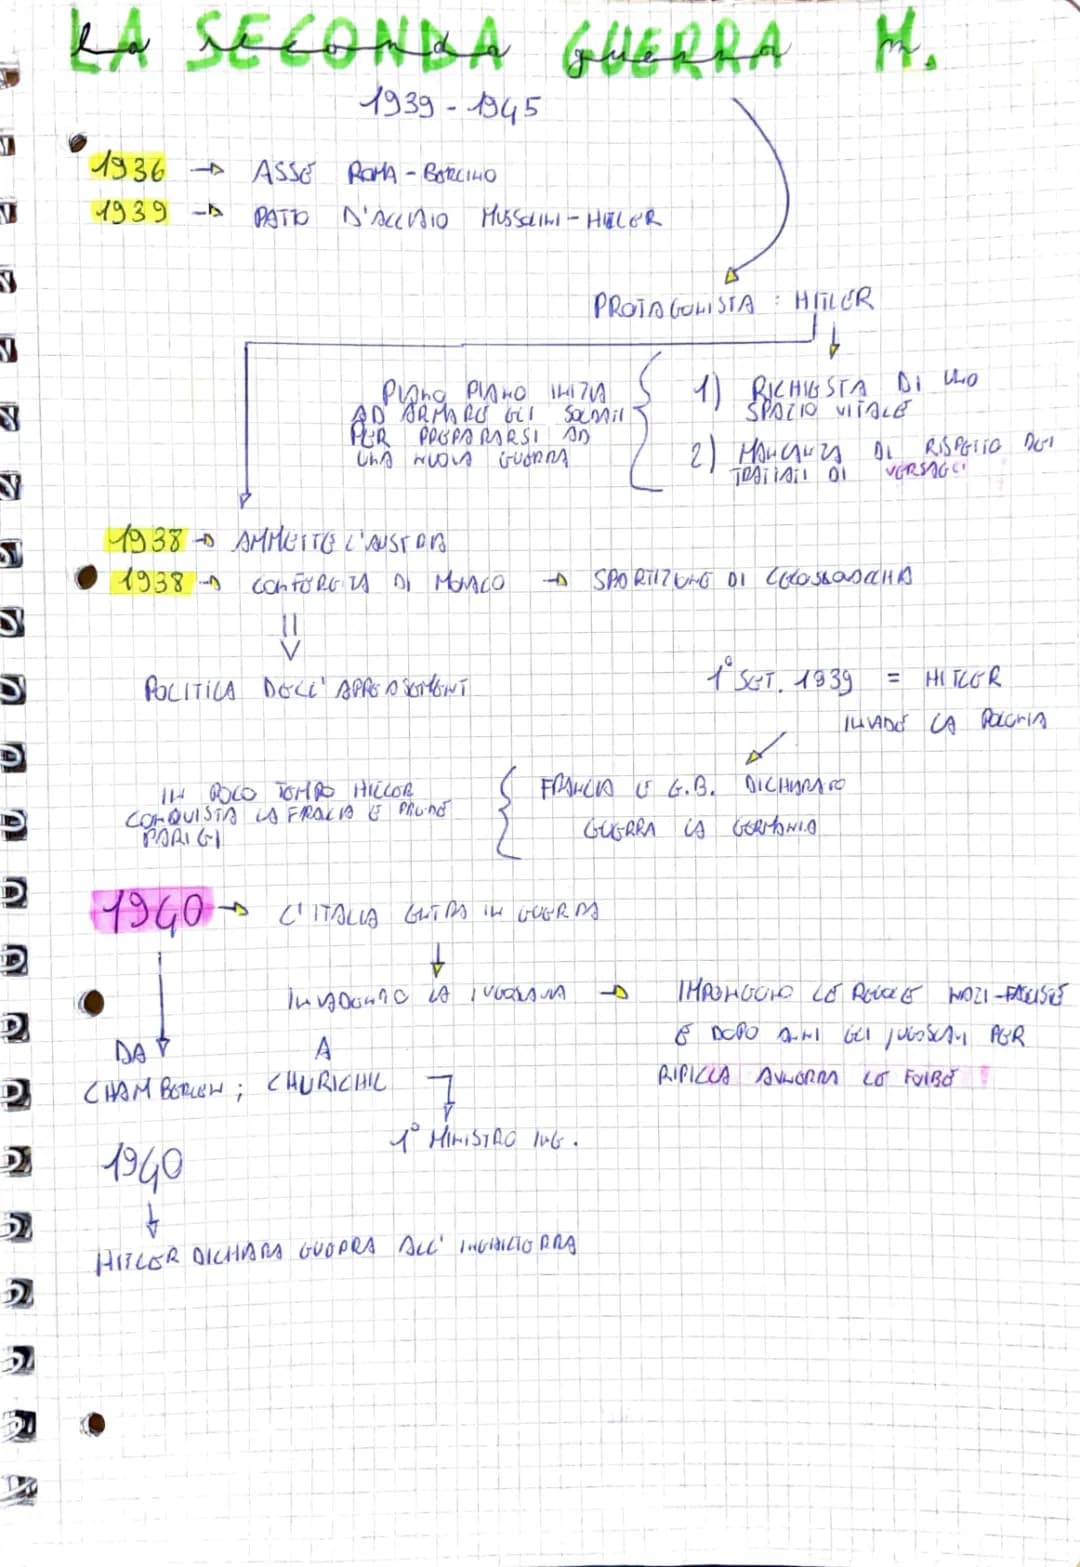 LA SECONDA GUERRA M.
la seconda guerra m.
1939 - 1945
1936 → ASSE ROMA - BERLINO
1939 → PATTO D'ACCIAIO MUSSOLINI - HITLER
PROTAGONISTA : HITLER
1) RICHIESTA DI UNO
SPAZIO VITALE
2) MANCANZA DI RISPETTO DEI
TRATTATI DI VERSAGLI
PIANO PIANO INIZIA
AD ARMARE GLI SOLDATI
PER PREPARARSI AD
UNA NUOVA GUERRA
1938 → AMMETTE L'AUSTRIA
1938 → CONFERENZA DI MONACO → SPARTIZIONE DI
POLITICA DELL' APPEASEMENT
1° SET. 1939 = HITLER
INVADE LA POLONIA
FRANCIA E G.B. DICHIARANO
GUERRA LA GERMANIA
IN POCO TEMPO HITLER
CONQUISTA LA FRACIA E PRENDE
PARIGI
1940 → L'ITALIA ENTRA IN GUERRA
INVADONO LA → IMPONGONO LE REGOLE NAZI-FASCISTE
E DOPO ANNI GLI JUGOSLAVI PER
RIPICCA LE FOIBE !
DA A
CHAMBERLEN ; CHURICHIL
1° MINISTRO ING.
1940
HITLER DICHIARA GUERRA ALL' INGHILTERRA